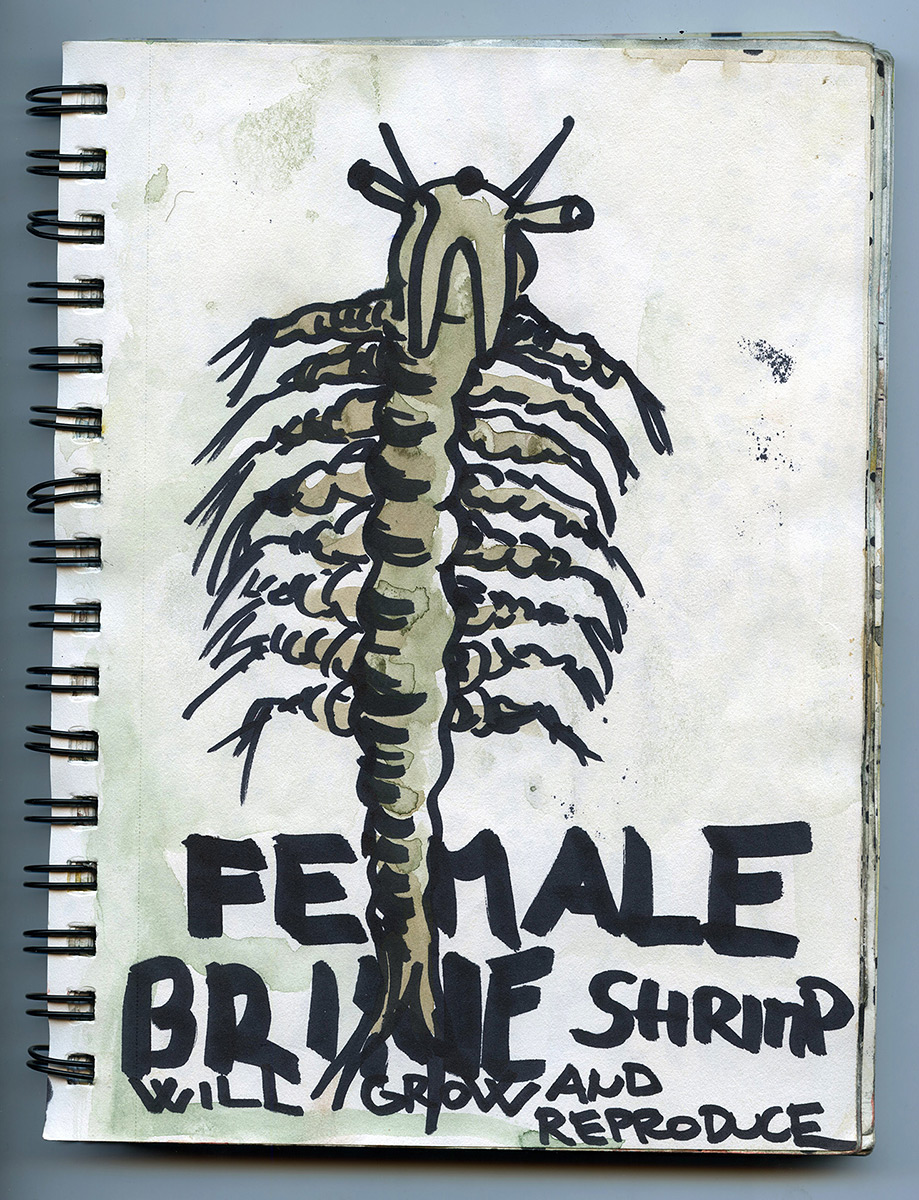 FEMALE
BRINE SHRIMP
WILL GROW AND
REPRODUCE